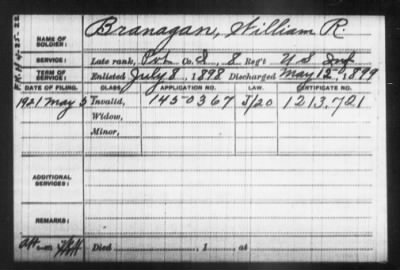 NAME OF SOLDIER: Branagan, William R.
SERVICE: Late rank, Pvt Co. I, 8 Reg't U S Inf
TERM OF SERVICE: Enlisted July 8, 1898 Discharged May 12, 1899
DATE OF FILING. CLASS. APPLICATION NO. LAW. CERTIFICATE NO.
1921 May 5 Invalid, 1450367 J/20 1,213,721
Widow,
Minor,
ADDITIONAL SERVICES:
REMARKS:
Died , 1 , at